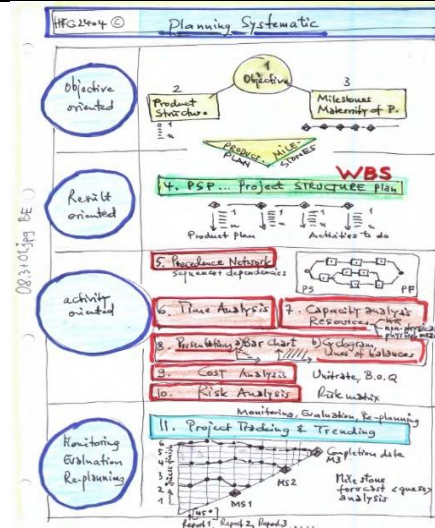 HFG2404 ©
Planning Systematic
Objective
oriented
1
Objective
2
Product
Structure
3
Milestones
Maternity of P.
PRODUCT-
PLAN
MILE-
STONES
WBS
Result
oriented
4. PSP... Project STRUCTURE plan
Product plan
Activities to do
activity
oriented
5. Precedence Network
sequences dependencies
PS
PF
6. Time Analysis
7. Capacity analysis
Resources
8. Presentation a) Bar Chart b) Cyclogram
Lines of balances
9. Cost Analysis
Unitrate, B.O.Q
10. Risk Analysis
Risk matrix
Monitoring, Evaluation, Re-planning
Monitoring
Evaluation
Re-planning
11. Project Tracking & Trending
6
5
4
3
2
1
Completion date
M3
MS2
MS1
Milestone
forecast <guess>
analysis
45°
Report 1. Report 2, Report 3